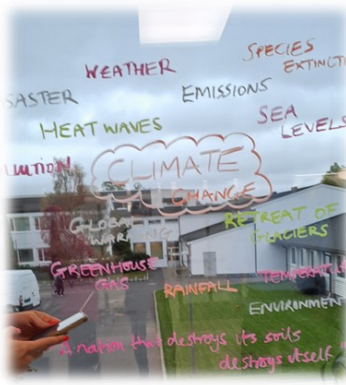 SPECIES
EXTINCTI
WEATHER
EMISSIONS
SASTER
SEA
LEVELS
HEAT WAVES
LUTION
CLIMATE
CHANGE
GLOBAL
WARMING
RETREAT OF
GLACIERS
GREENHOUSE
GAS
RAINFALL
TEMPERATU
ENVIRONMEN
A nation that destroys its soils
destroys itself"